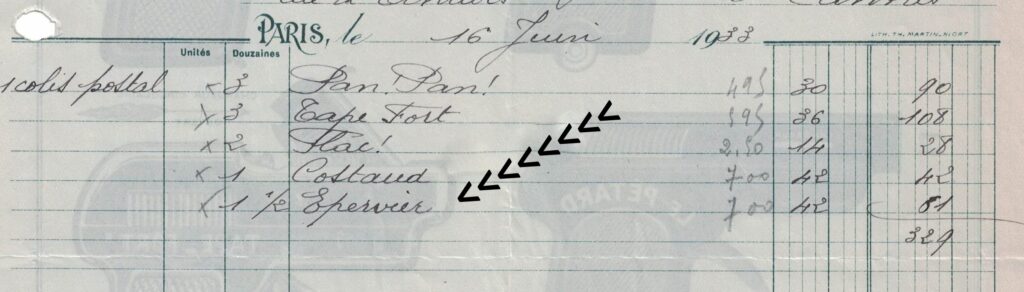 rue d'Antibes Cannes
PARIS, le 16 Juin 1933
LITH. TH. MARTIN, NIORT
Unités Douzaines
1 colis postal x 3 Pan! Pan! 495 30 90
x 3 Tape Fort 595 36 108
x 2 Flac! 2,50 14 28
x 1 Costaud 700 42 42
x 1 1/2 Epervier 700 42 61
329
LE PETARD